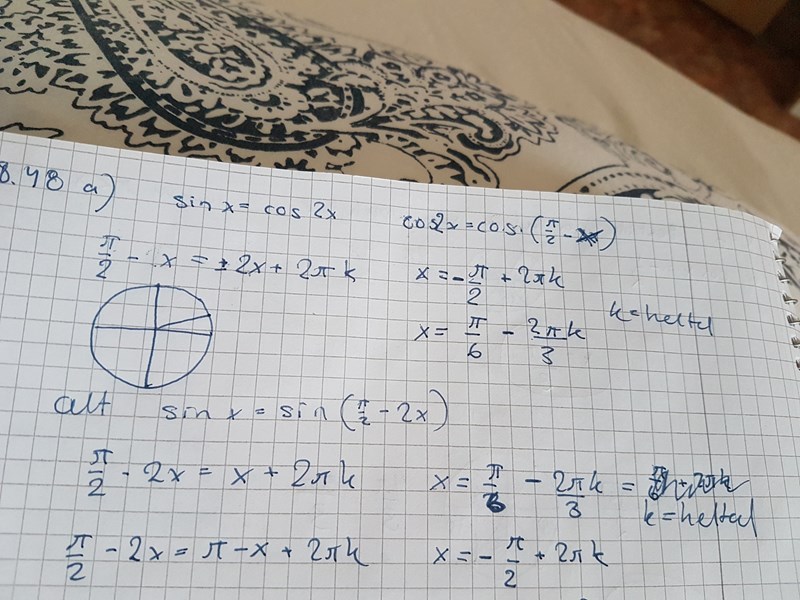 8.48 a) sin x = cos 2x cos 2x = cos (π/2 - x)
π/2 - x = ±2x + 2πk x = -π/2 + 2πk
x = π/6 - 2πk/3 k = heltal
alt sin x = sin (π/2 - 2x)
π/2 - 2x = x + 2πk x = π/6 - 2πk/3 =
k = heltal
π/2 - 2x = π - x + 2πk x = -π/2 + 2πk